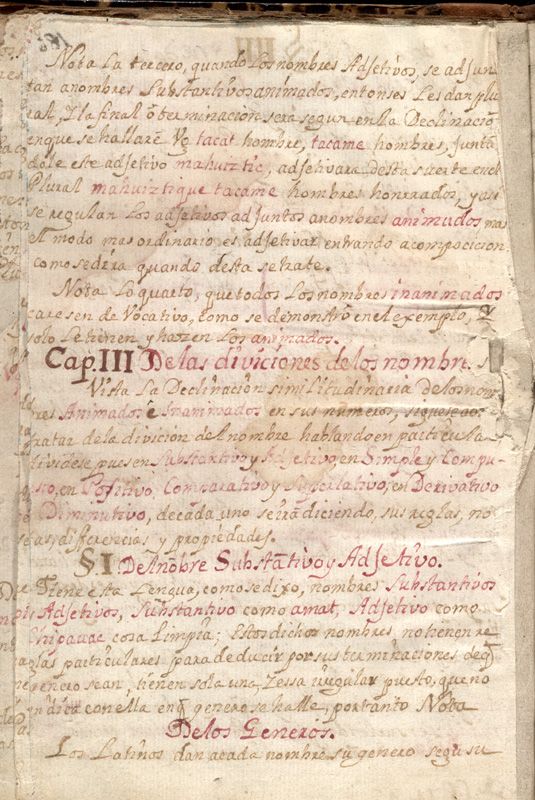 Nota La tercero, quando Los nombres Adjetivos, se adjun
tan anombres Substantivos animados, entonses Les dan plu
ral, Y la final ô terminacion sera segun en la Declinaciô
enque se hallarê Vg tacat hombre, tacame hombres, junta
dole este adjetivo mahuiztic, adjetivara desta suerte en el
Plural mahuiztique tacame hombres honrrados, y asi
se regulan Los adjetivos adjuntos anombres animados mas
el modo mas ordinario es adjetivar entrando acomposicion
como se dira quando desta se trate.
Nota Lo quarto, que todos Los nombres inanimados
caresen de Vocativo, como se demonstrò en el exemplo, y
solo Le tienen y hazen Los animados.
Cap. III De las diviciones de los nombres.
Vista La Declinacion similitudinaria de los nom
bres Animados è Inanimados en sus numeros, siguese aora
tratar de la divicion del nombre hablando en particula
Dividese pues en Substantivo y Adjetivo, en Simple y Compu
esto, en Positivo, Comparativo y Superlativo, en Derivativo
y Diminutivo, decada uno se irâ diciendo, sus reglas, no
tas, differencias y propiedades.
§ I. Del nôbre Substãtivo y Adjetivo.
Tiene esta Lengua, como se dixo, nombres Substantivos
y Adjetivos, Substantivo como amat, Adjetivo como
Chipauac cosa Limpia; Estos dichos nombres, no tienen re
glas particulares para deducir por sus terminaciones deq
genero sean, tienen sola una, Y essa irregular puesto, que no
indica con ella en q genero se halle, por tanto Nota
De los Generos.
Los Latinos dan acada nombre su genero segu su